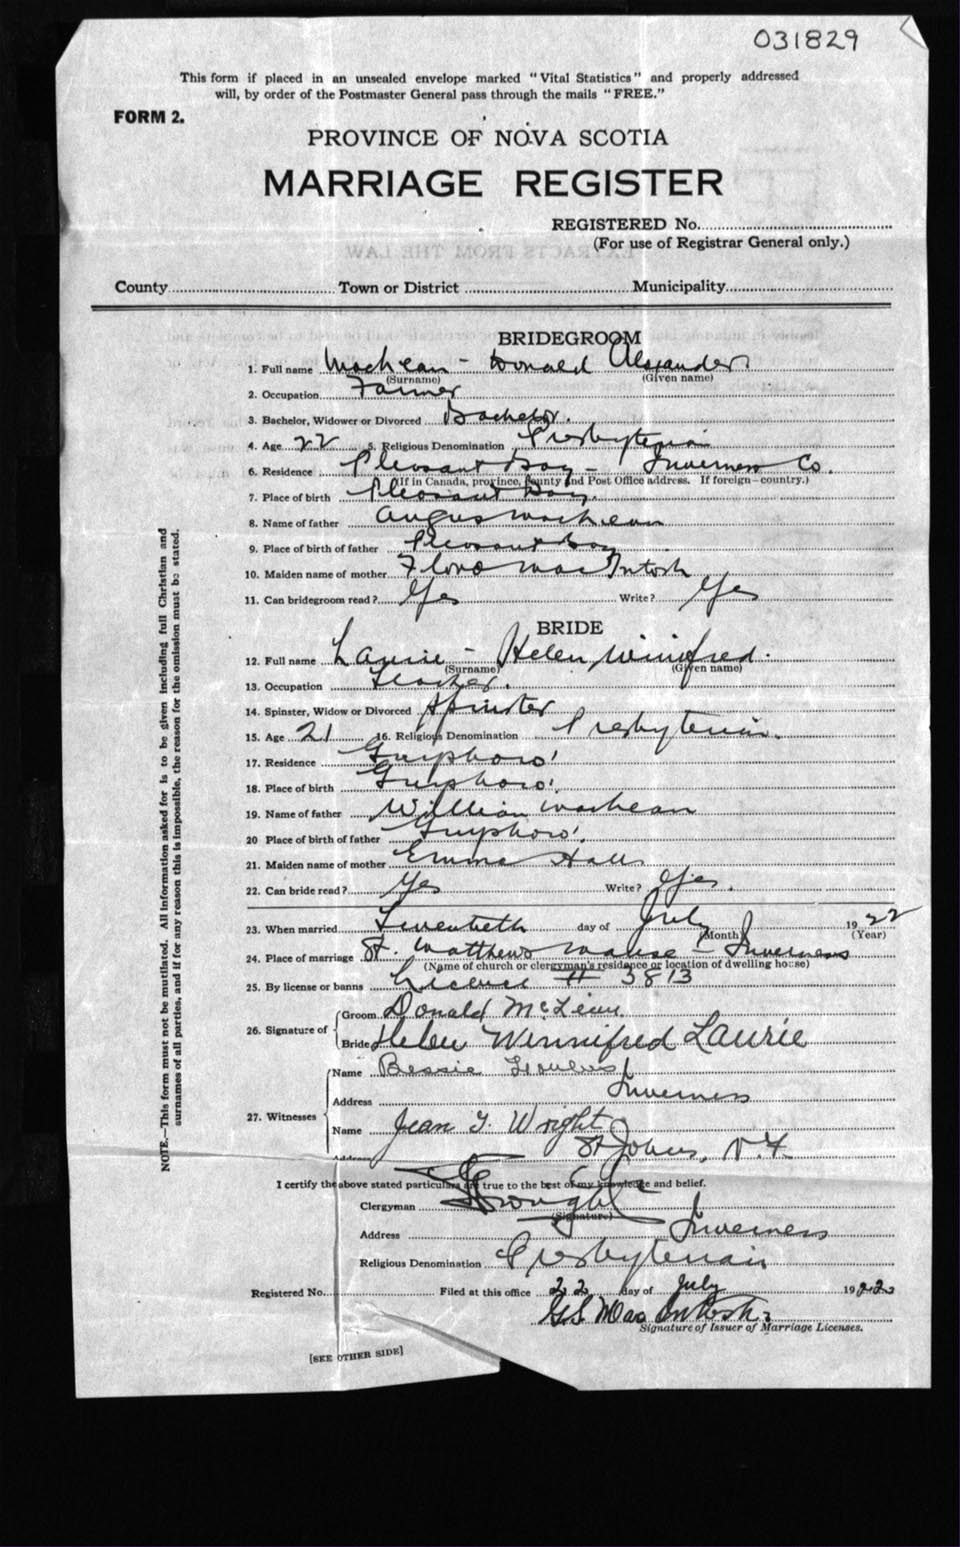 031829
This form if placed in an unsealed envelope marked "Vital Statistics" and properly addressed
will, by order of the Postmaster General pass through the mails "FREE."
FORM 2.
PROVINCE OF NOVA SCOTIA
MARRIAGE REGISTER
REGISTERED No.
(For use of Registrar General only.)
County Town or District Municipality
BRIDEGROOM
1. Full name MacLean - Donald Alexander
(Surname) (Given name)
2. Occupation Farmer
3. Bachelor, Widower or Divorced Bachelor.
4. Age 22 5. Religious Denomination Presbyterian
6. Residence Pleasant Bay - Inverness Co.
(If in Canada, province, county and Post Office address. If foreign—country.)
7. Place of birth Pleasant Bay.
8. Name of father Angus MacLean
9. Place of birth of father Pleasant Bay
10. Maiden name of mother Flora MacIntosh
11. Can bridegroom read? Yes Write? Yes
BRIDE
12. Full name Laurie - Helen Winifred.
(Surname) (Given name)
13. Occupation Teacher.
14. Spinster, Widow or Divorced Spinster
15. Age 21 16. Religious Denomination Presbyterian.
17. Residence Guysboro'
18. Place of birth Guysboro'.
19. Name of father William MacLean
20 Place of birth of father Guysboro'
21. Maiden name of mother Emma Hall
22. Can bride read? Yes Write? Yes.
23. When married Twentieth day of July 1922
(Month) (Year)
24. Place of marriage St. Matthews Manse - Inverness
(Name of church or clergyman's residence or location of dwelling house)
25. By license or banns License # 3813
26. Signature of Groom Donald McLean
Bride Helen Winnifred Laurie
27. Witnesses
Name Bessie
Address Inverness
Name Jean Y. Wright
Address St Johns, N.F.
I certify the above stated particulars are true to the best of my knowledge and belief.
Clergyman
(Signature)
Address Inverness
Religious Denomination Presbyterian
Registered No. Filed at this office 22 day of July 1922
G.S. MacIntosh
Signature of Issuer of Marriage Licenses.
[SEE OTHER SIDE]
NOTE.—This form must not be mutilated. All information asked for is to be given including full Christian and
surnames of all parties, and if for any reason this is impossible, the reason for the omission must be stated.